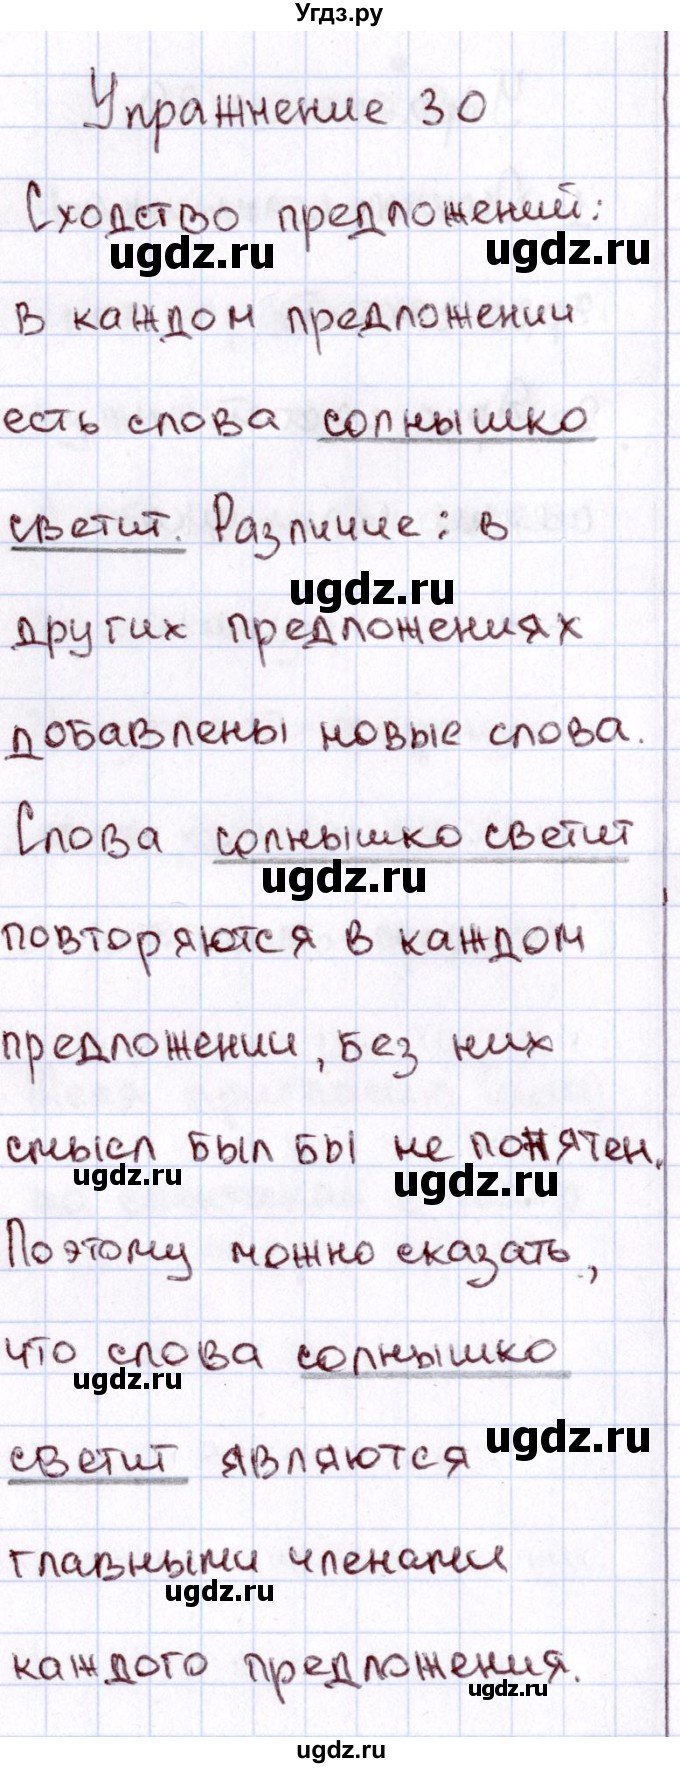 Угдз.ру
Упражнение 30
Сходство предложений:
ugdz.ru ugdz.ru
в каждом предложении
есть слова солнышко
светит. Различие: в
ugdz.ru
других предложениях
добавлены новые слова.
Слова солнышко светит
ugdz.ru
повторяются в каждом
предложении, без них
смысл был бы не понятен.
ugdz.ru ugdz.ru
Поэтому можно сказать,
что слова солнышко
ugdz.ru
светит являются
ugdz.ru
главными членами
ugdz.ru
каждого предложения.
ugdz.ru
ugdz.ru